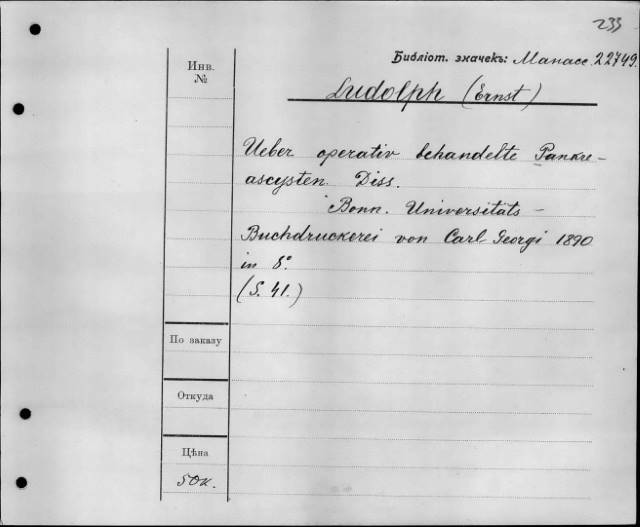 233
Библіот. значекъ: Манасс. 22749.
Инв.
№
Ludolph (Ernst)
Ueber operativ behandelte Pankre-
ascysten. Diss.
Bonn. Universitäts-
Buchdruckerei von Carl Georgi 1890
in 8°.
(S. 41.)
По заказу
Откуда
Цѣна
50к.